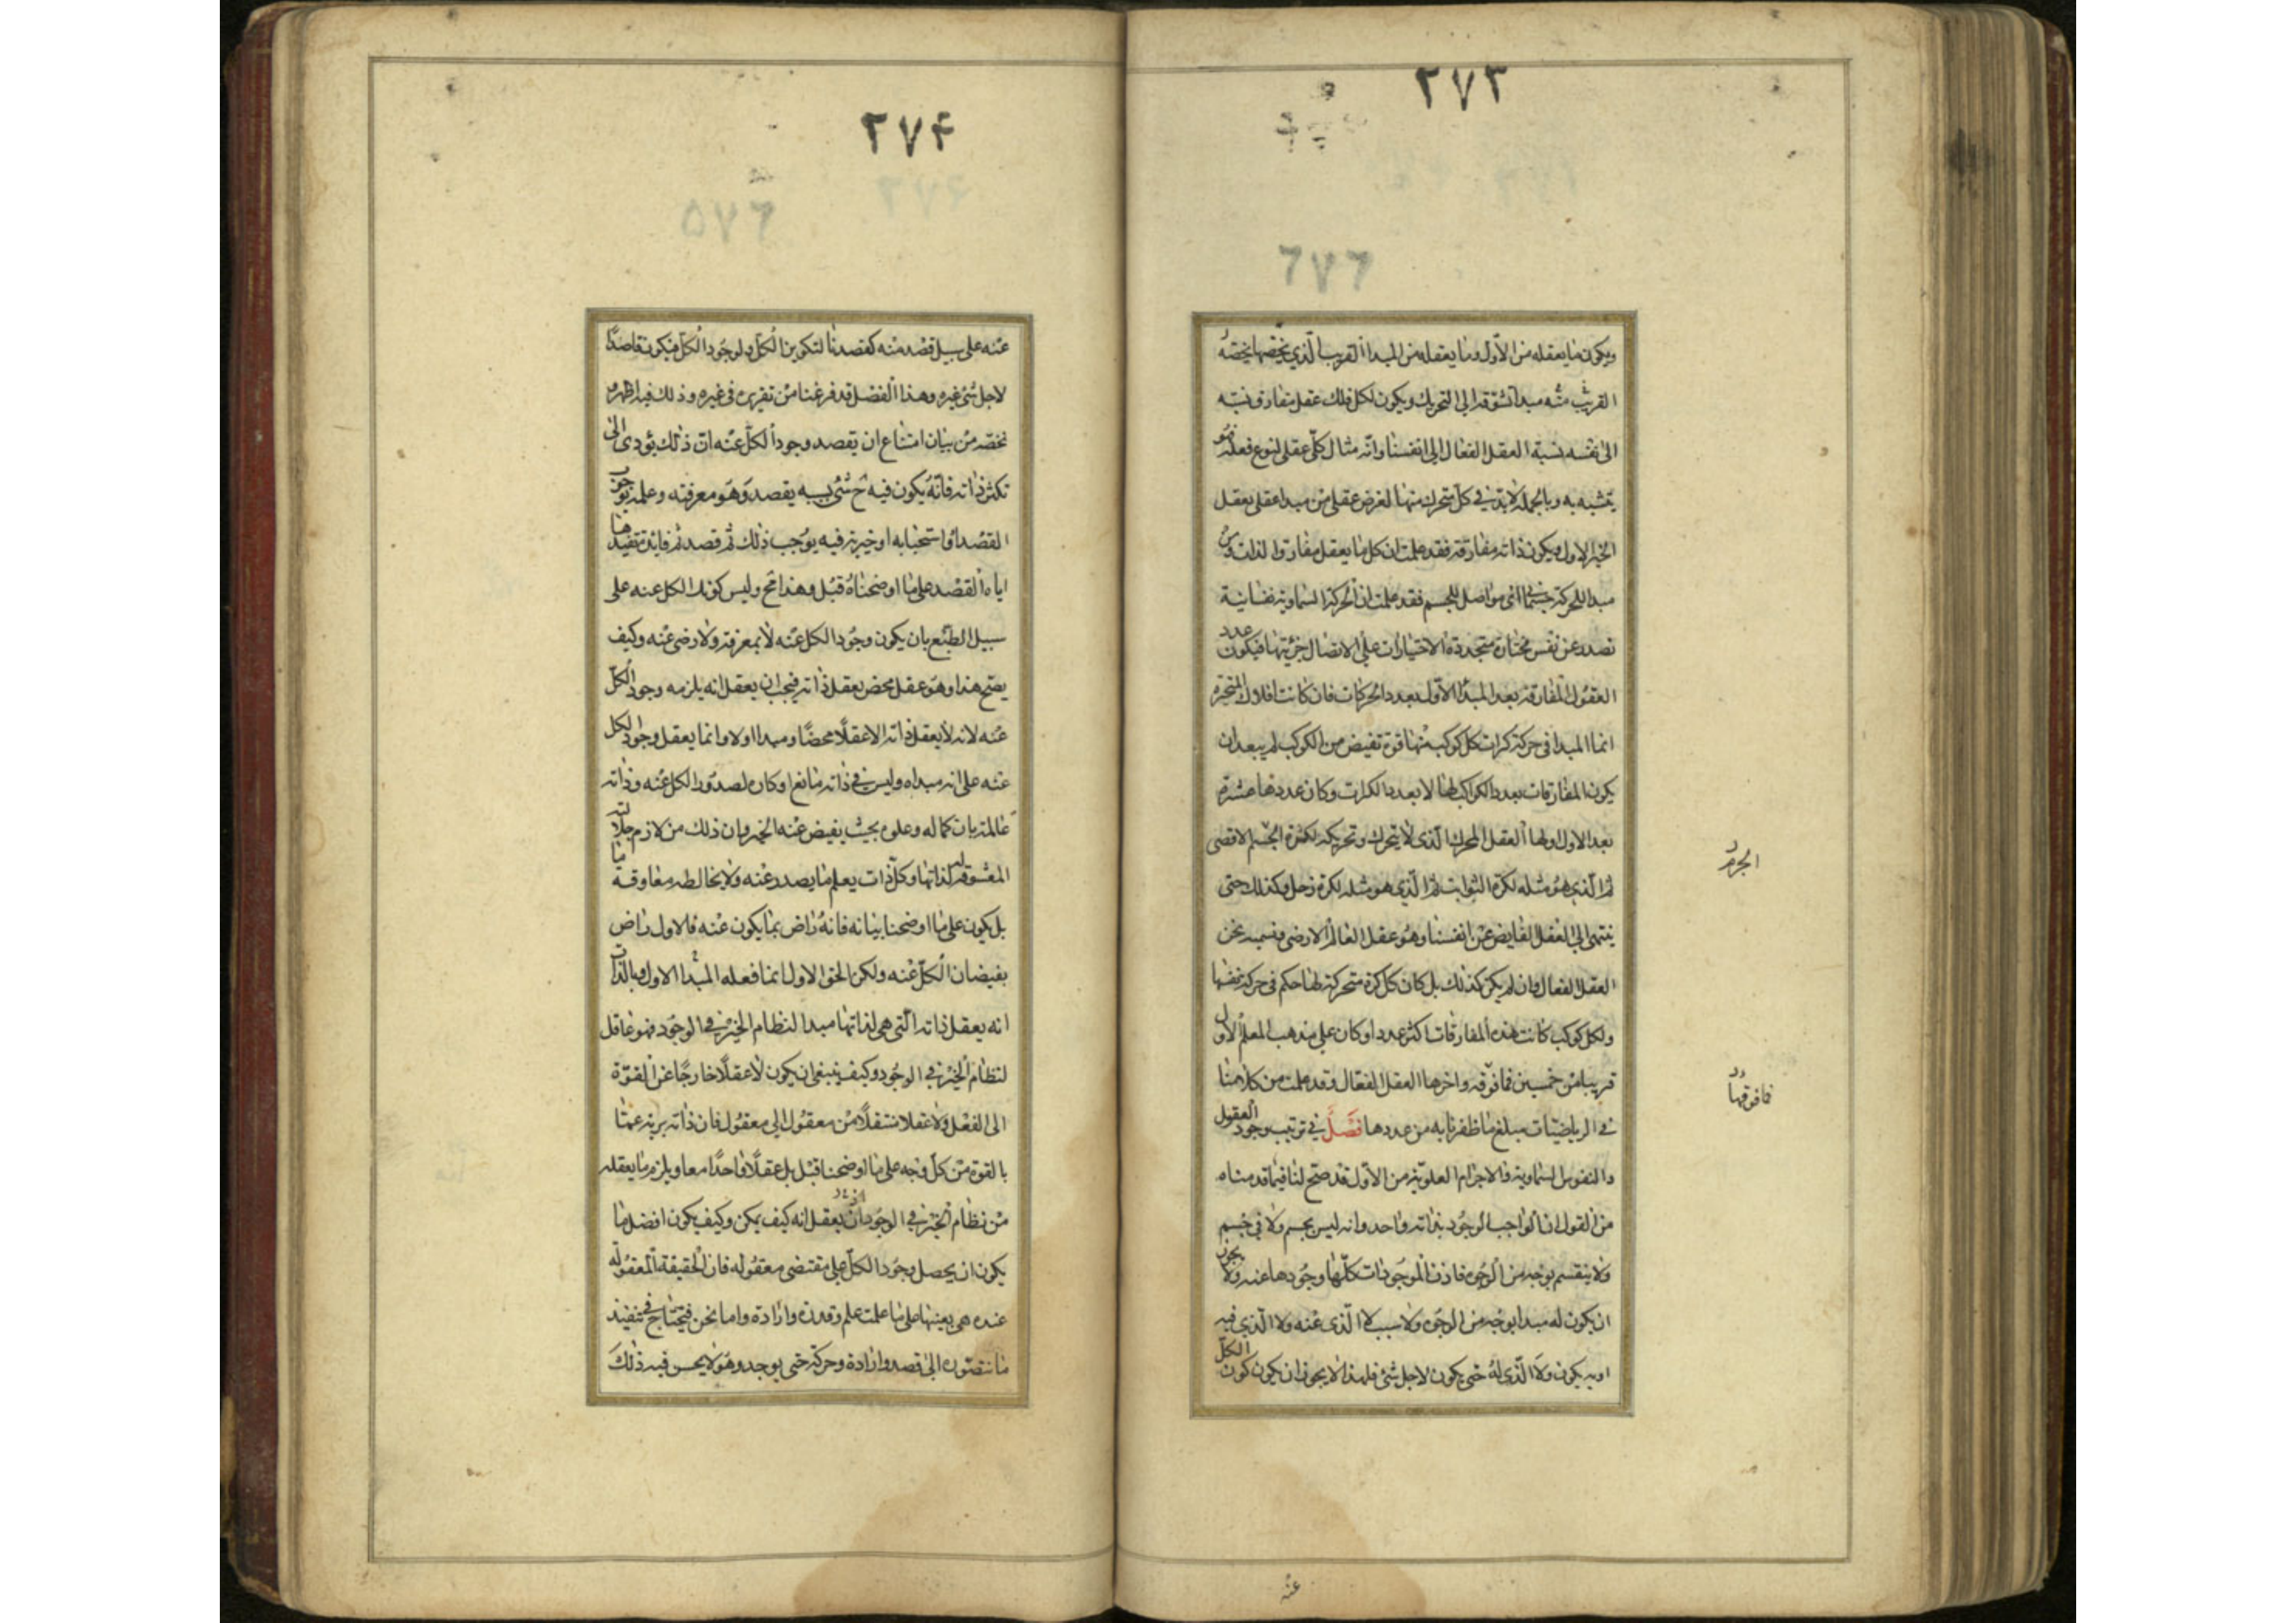 ٢٧٣
٦٧٦
ويكون ما يعقله من الأول وما يعقله من المبدأ القريب الّذي يخصّها يخصّه
القريب منه مبدأ تشوّقه إلى التحريك ويكون لكل فلك عقل مفارق نسبته
الى نفسه نسبة العقل الفعّال إلى انفسنا وانّه مثال كلّي عقلي لنوع فعله فهو
يتشبه به وبالجملة لابدّ في كلّ متحرك منها لغرض عقلي من مبدا عقلي يعقل
الخير الاول ويكون ذاته مفارقة فقد علمت ان كل ما يعقل مفارق الذات ومن
مبدا للحركة جسماني اي مواصل للجسم فقد علمت ان الحركة السماوية نفسانية
تصدر عن نفس مختارة متجددة الاختيارات على الاتصال جزئيتها فيكون عدد
العقول المفارقة بعد المبدأ الاوّل بعدد الحركات فان كانت افلاك المتحيرة
انما المبدا في حركة كرات كل كوكب منها قوة تفيض من الكوكب لم يبعد ان
يكون المفارقات بعدد الكواكب لها لا بعدد الكرات وكان عددها عشرة
بعد الاول اولها العقل المحرك الّذي لا يتحرك وتحريكه لكرة الجسم الاقصى
ثم الّذي هو مثله لكرة الثوابت ثم الّذي هو مثله لكرة زحل وكذلك حتى
ينتهي الي العقل الفايض على انفسنا وهو عقل العالم الارضي ونسميه نحن
العقل الفعال وان لم يكن كذلك بل كان كل كرة متحركة لها حكم في حركة نفسها
ولكل كوكب كانت هذه المفارقات اكثر عددا وكان علي مذهب المعلم الاول
قريبا من خمسين فما فوقه واخرها العقل الفعّال وقد علمت من كلامنا
في الرياضيّات مبلغ ما ظفرنا به من عددها فصل في ترتيب وجود العقول
والنفوس السماوية والاجرام العلويّة من الاوّل قد صحّ لنا فيما قدمناه
من القول ان الواجب الوجود بذاته واحد وانه ليس بجسم ولا في جسم
ولا ينقسم بوجه من الوجوه فاذن الموجودات كلّها وجودها عنه ولا يجوز
ان يكون له مبدا بوجه من الوجوه ولا سبب لا الّذي عنه ولا الّذي فيه
او به يكون ولا الّذي له حتى يكون لاجل شئ فلهذا لا يجوز ان يكون كون الكلّ
الجرم
فما فوقها
عنه
٢٧۴
٥٧٦
عنه على سبيل قصد منه كقصدنا لتكوين الكلّ ولوجود الكلّ فيكون قاصدًا
لاجل شئ غيره وهذا الفصل قد فرغنا من تقريره في غيره وذلك فيه اظهر
نخصّه من بيان امتناع ان يقصد وجود الكلّ عنه انّ ذلك يؤدى الى
تكثر ذاته فانّه يكون فيه ح شئ بسببه يقصد وهو معرفته وعلمه بوجوب
القصد او استحبابه او خيرية فيه يوجب ذلك ثم قصد ثم فايدة يفيدها
اياه القصد على ما اوضحناه قبل وهذا مح وليس كون الكل عنه على
سبيل الطبع بان يكون وجود الكل عنه لا بمعرفة ولا رضى عنه وكيف
يصحّ هذا وهو عقل محض يعقل ذاته فيجب ان يعقل انه يلزمه وجود الكلّ
عنه لانه لا يعقل ذاته الا عقلًا محضًا ومبدا اولا وانما يعقل وجود الكل
عنه على انه مبداه وليس في ذاته مانع او كاره لصدور الكل عنه وذاته
عالمة بان كماله وعلوه بحيث يفيض عنه الخير وان ذلك من لازم جلالته
المعشوقة له لذاتها وكلّ ذات يعلم ما يصدر عنه ولا يخالطه معاوقة ما
بل يكون على ما اوضحنا بيانه فانه راض بما يكون عنه فالاول راض
بفيضان الكلّ عنه ولكن الحق الاول انما فعله المبدا الاول وبالذات
انه يعقل ذاته الّتي هي لذاتها مبدا لنظام الخير في الوجود فهو عاقل
لنظام الخير في الوجود وكيف ينبغي ان يكون لا عقلًا خارجًا عن القوّة
الى الفعل ولا عقلا منتقلًا من معقول الي معقول فان ذاته برية عمّا
بالقوة من كلّ وجه على ما اوضحنا قبل بل عقلًا واحدًا معا ويلزم ما يعقله
من نظام الخير في الوجود ان يعقل انه كيف يمكن وكيف يكون افضل ما
يكون ان يحصل وجود الكلّ على مقتضى معقوله فان الحقيقة المعقولة
عنده هي بعينها على ما علمت علم وقدرة وارادة واما نحن فنحتاج في تنفيذ
ما نتصوّره الى قصد وارادة وحركة حتى يوجد وهو لا يحسن فيه ذلك